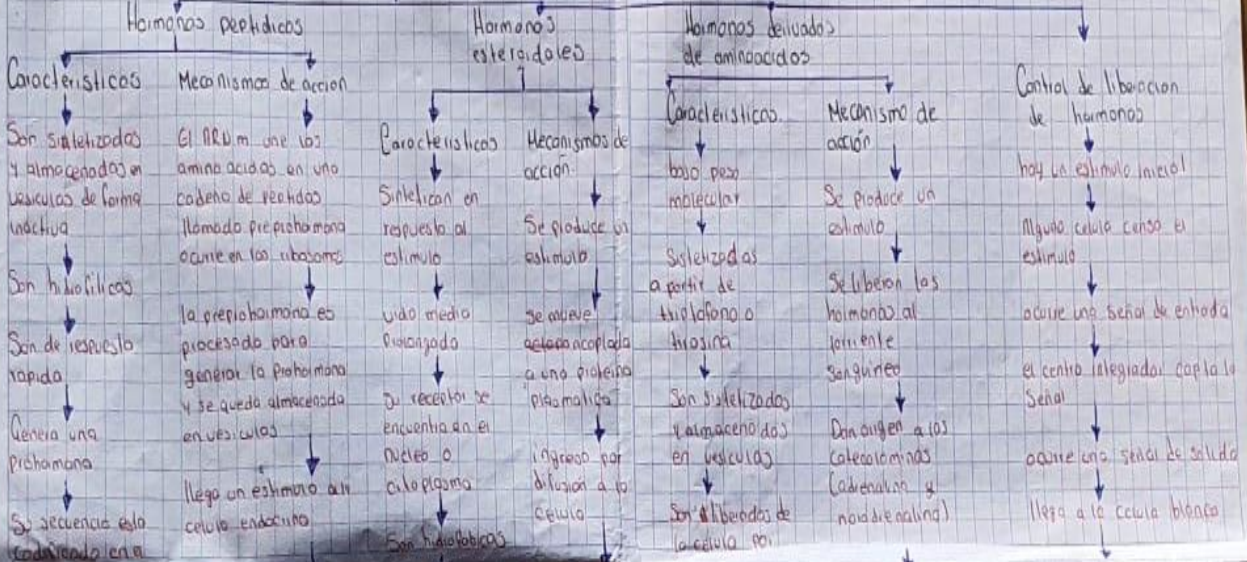 Hormonas peptidicas
Caracteristicas
Son sintetizadas
y almacenadas en
vesiculas de forma
inactiva
Son hidrofilicas
Son de respuesta
rapida
Genera una
prohormona
Su secuencia esta
codificada en a
Mecanismos de accion
El ARNm une los
amino acidos en una
cadena de peptidos
llamado preprohormona
ocurre en los ribosomas
la preprohormona es
procesada para
generar la prohormona
y se queda almacenada
en vesiculas
llega un estimulo a la
celula endocrina
Hormonas
esteroidales
Caracteristicas
Sintetican en
respuesta al
estimulo
vida media
prolongada
Su receptor se
encuentra en el
nucleo o
citoplasma
Son hidrofobicas
Mecanismos de
acción
Se produce un
estimulo
se mueve
acoplada
a una proteina
plasmatica
ingreso por
difusion a la
celula
Hormonas derivadas
de aminoacidos
Caracteristicas
bajo peso
molecular
Sistetizadas
a partir de
triptofono o
tirosina
Son sistetizados
y almacenados
en vesiculas
Son liberados de
la celula por
Mecanismo de
acción
Se produce un
estimulo
Se liberan las
hormonas al
torrente
sanguineo
Dan origen a las
catecolaminas
(adrenalina y
noradrenalina)
Control de liberacion
de hormonas
hay un estimulo inicial
Alguna celula censa el
estimulo
ocurre una señal de entrada
el centro integrador capta la
señal
ocurre una señal de salida
llega a la celula blanco